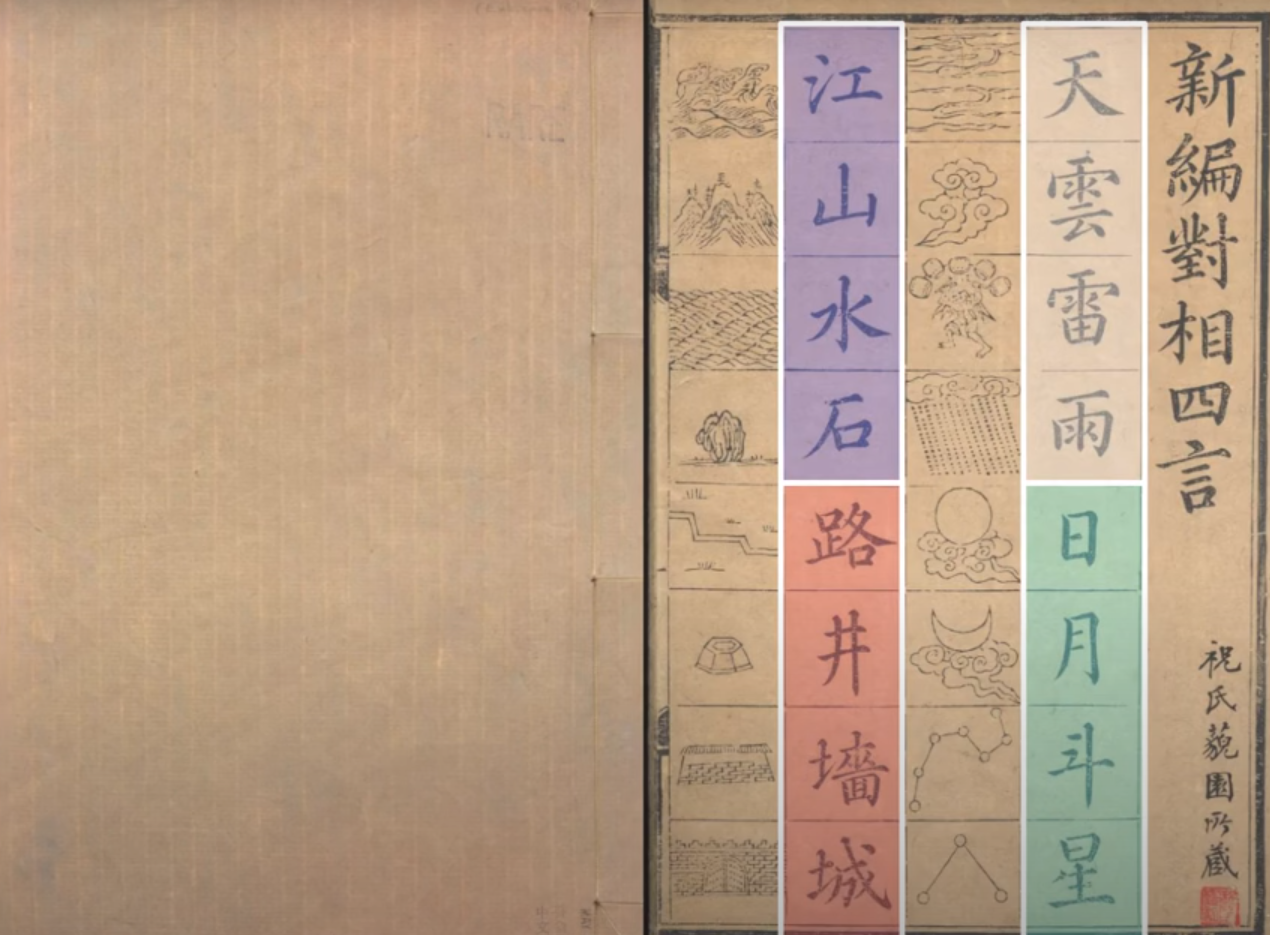 新編對相四言
祝氏藐園所藏
天雲雷雨
日月斗星
江山水石
路井墻城